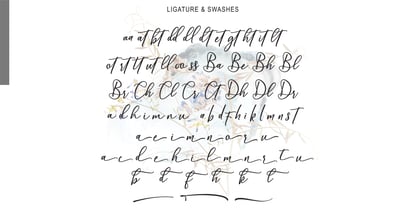 LIGATURE & SWASHES
aa at bt dd dl dt et gt ht it lt
ot rt tt ut ll oo ss Ba Be Bh Bl
Br Ch Cl Cr Ct Dh Dl Dr
a d h i m n u a b d f h i k t
a e i m n o r u
a c d e h i l m n r t u
b d f h k t